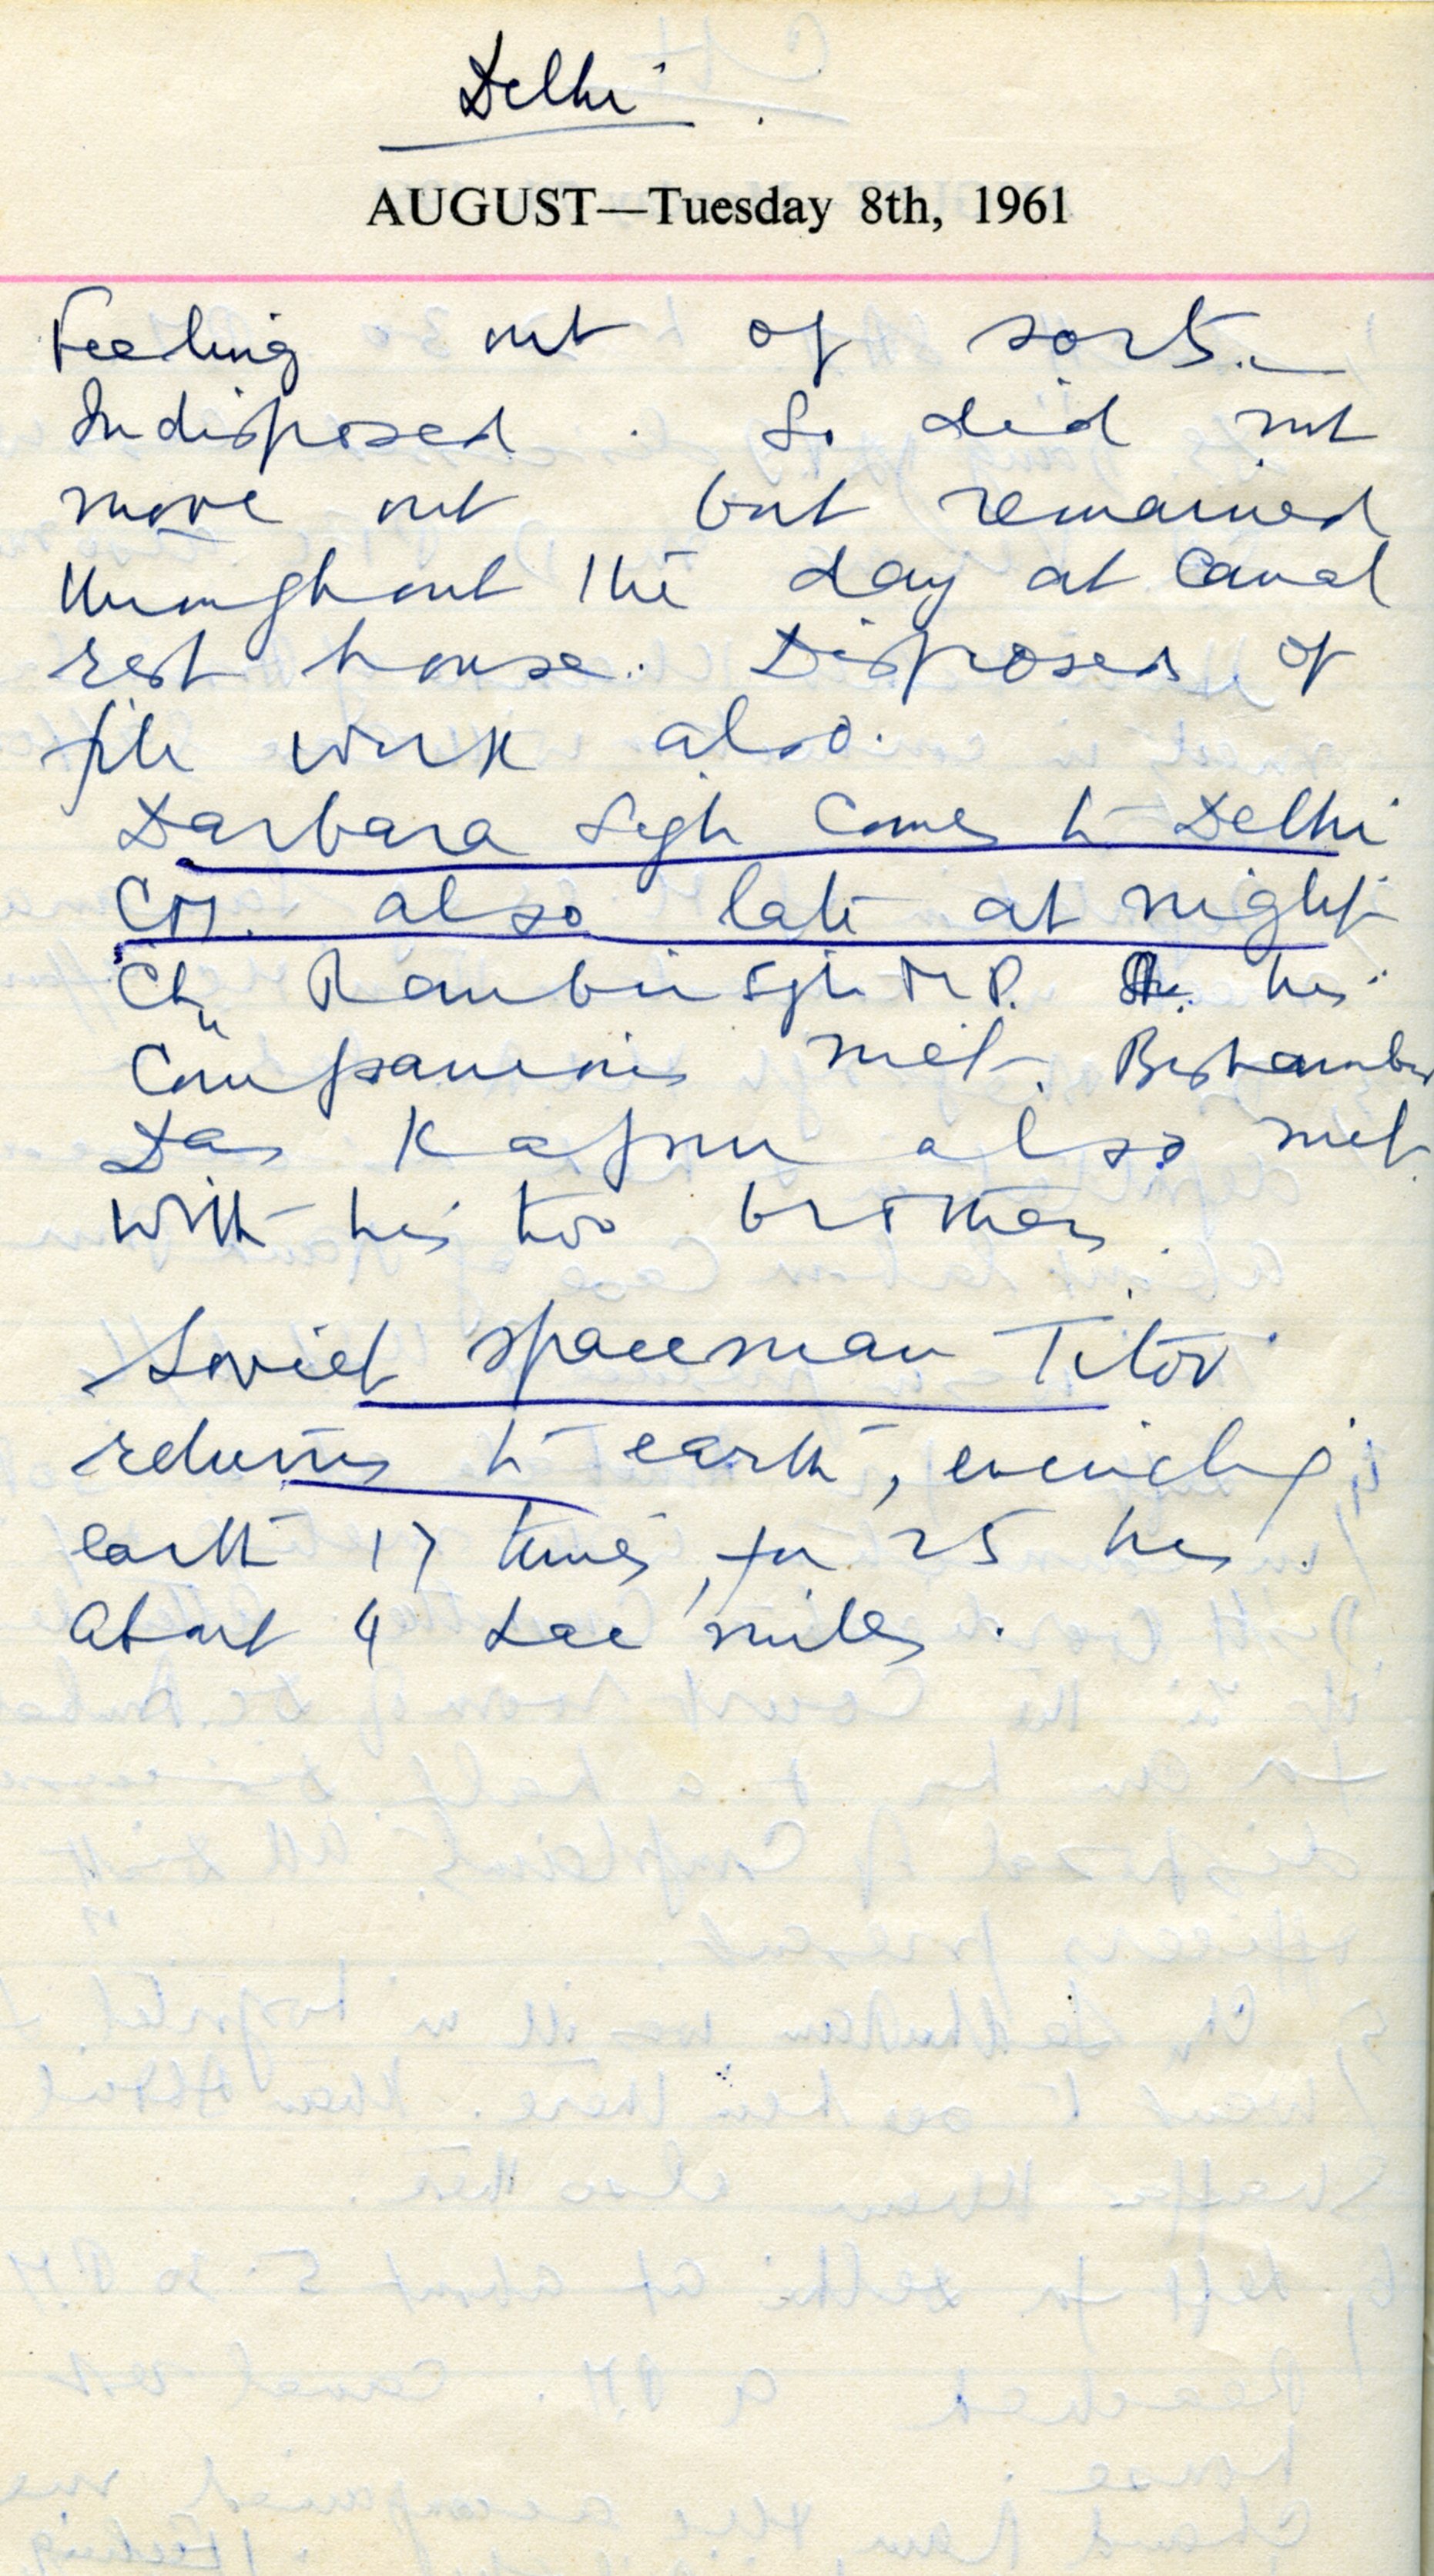 Delhi
AUGUST—Tuesday 8th, 1961
Feeling out of sorts.
Indisposed. So did not
move out but remained
throughout the day at Canal
rest house. Disposed of
file work also.
Darbara Sigh comes to Delhi
CM. also late at night
Ch. Ranbir Sgh M P. his
Companions met. Bishamber
Das Kapur also met
with his two brothers.
Soviet spaceman Titov
returns to earth,
earth 17 times, for 25 hrs.
About 4 Lac miles.